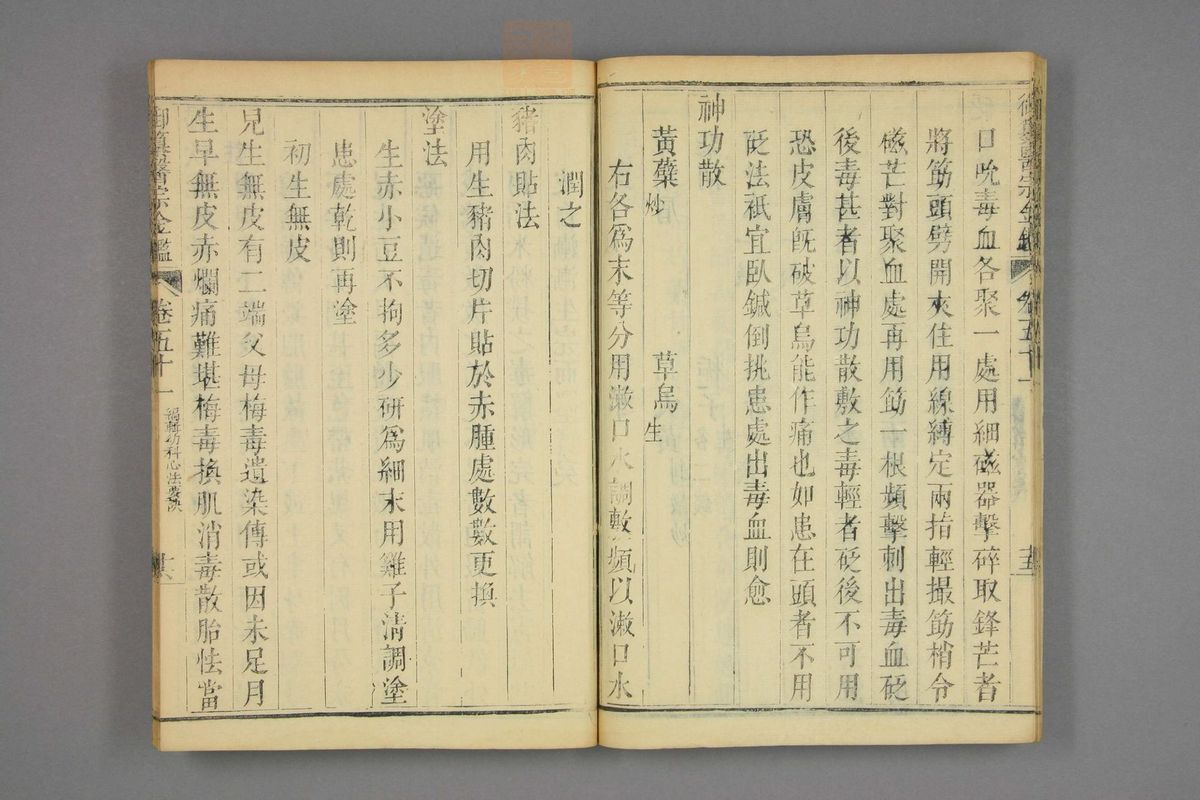 口吮毒血各聚一處用細磁器擊碎取鋒芒者
將筋頭劈開夾住用線縛定兩指輕撮筋梢令
磁芒對聚血處再用筋一根頻擊刺出毒血砭
後毒甚者以神功散敷之毒輕者砭後不可用
恐皮膚旣破草烏能作痛也如患在頭者不用
砭法祇宜臥鍼倒挑患處出毒血則愈
神功散
黃蘗炒 草烏生
右各爲末等分用漱口水調敷頻以漱口水
潤之
豬肉貼法
用生豬肉切片貼於赤腫處數數更換
塗法
生赤小豆不拘多少研爲細末用雞子清調塗
患處乾則再塗
初生無皮
兒生無皮有二端父母梅毒遺染傳或因未足月
生早無皮赤爛痛難堪梅毒換肌消毒散胎怯當
御纂醫宗金鑑 卷五十一 編輯幼科心法要訣